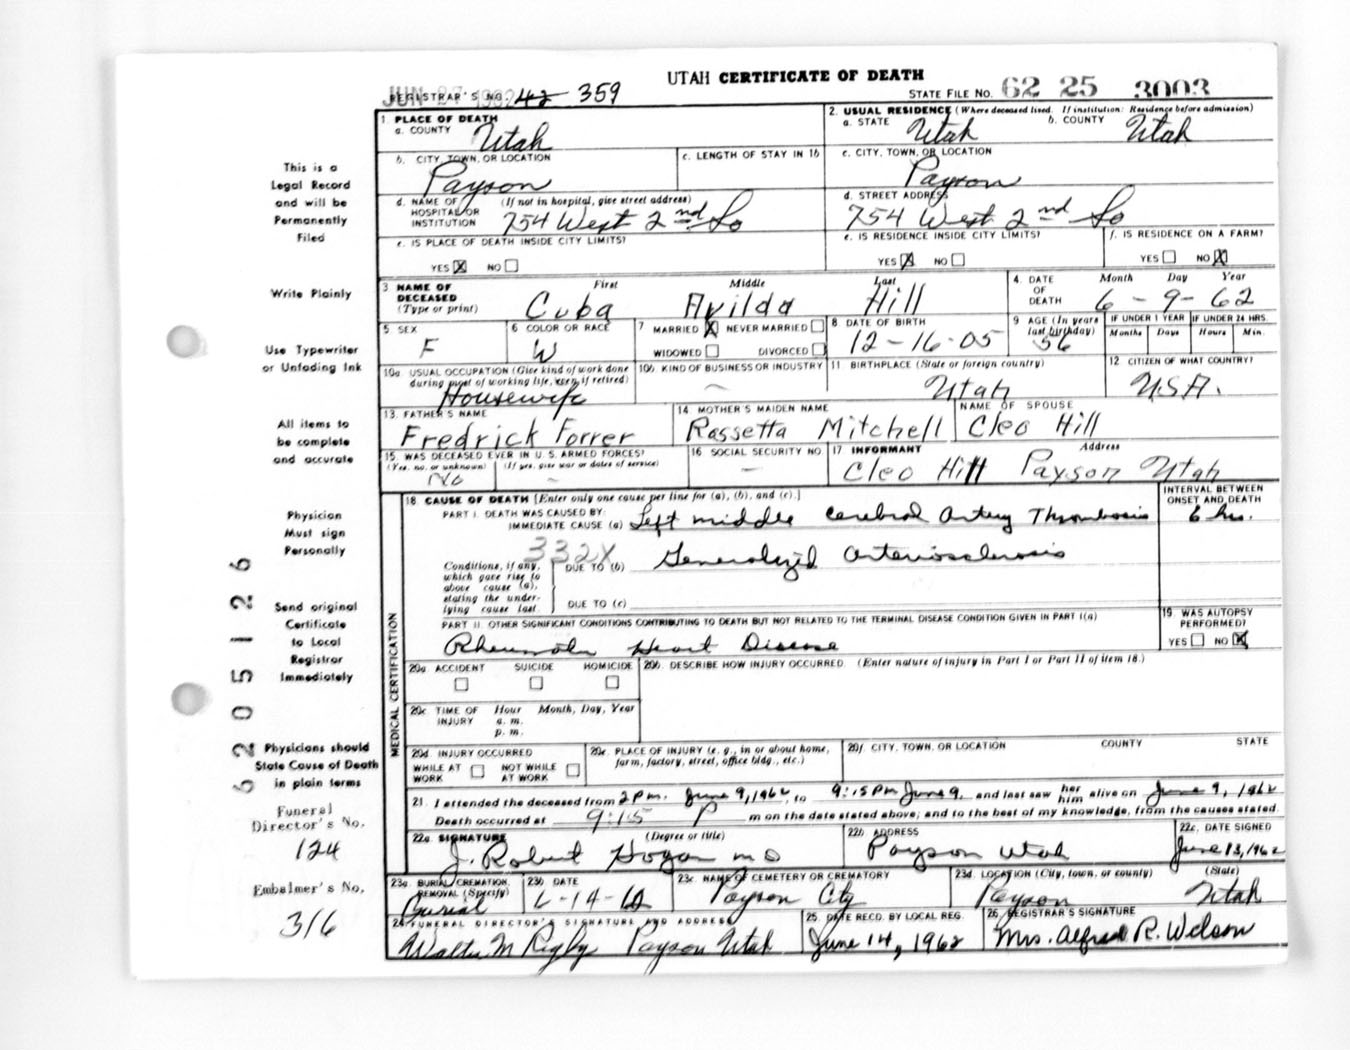 UTAH CERTIFICATE OF DEATH
JUN 27 1962
REGISTRAR'S NO. 42 359
STATE FILE NO. 62 25 3003
1. PLACE OF DEATH
a. COUNTY Utah
2. USUAL RESIDENCE (Where deceased lived. If institution: Residence before admission)
a. STATE Utah b. COUNTY Utah
b. CITY, TOWN, OR LOCATION Payson
c. LENGTH OF STAY IN 1b
c. CITY, TOWN, OR LOCATION Payson
d. NAME OF HOSPITAL OR INSTITUTION (If not in hospital, give street address) 754 West 2nd So
d. STREET ADDRESS 754 West 2nd So
e. IS PLACE OF DEATH INSIDE CITY LIMITS?
YES X NO
e. IS RESIDENCE INSIDE CITY LIMITS?
YES X NO
f. IS RESIDENCE ON A FARM?
YES NO X
3 NAME OF DECEASED (Type or print)
First Middle Last
Cuba Avilda Hill
4. DATE OF DEATH Month Day Year
6-9-62
5 SEX F
6 COLOR OR RACE W
7 MARRIED X NEVER MARRIED
WIDOWED DIVORCED
8 DATE OF BIRTH 12-16-05
9 AGE (In years last birthday) 56
IF UNDER 1 YEAR Months Days
IF UNDER 24 HRS. Hours Min.
10a. USUAL OCCUPATION (Give kind of work done during most of working life, even if retired) Housewife
10b KIND OF BUSINESS OR INDUSTRY
11 BIRTHPLACE (State or foreign country) Utah
12 CITIZEN OF WHAT COUNTRY? U.S.A.
13. FATHER'S NAME Fredrick Forrer
14 MOTHER'S MAIDEN NAME Rossetta Mitchell
NAME OF SPOUSE Cleo Hill
15 WAS DECEASED EVER IN U. S. ARMED FORCES?
(Yes, no, or unknown) (If yes, give war or dates of service)
No
16 SOCIAL SECURITY NO.
17 INFORMANT Address
Cleo Hill Payson Utah
18 CAUSE OF DEATH [Enter only one cause per line for (a), (b), and (c).]
INTERVAL BETWEEN ONSET AND DEATH
PART I. DEATH WAS CAUSED BY:
IMMEDIATE CAUSE (a) Left middle cerebral Artery Thrombosis 6 hrs.
332X
Conditions, if any, which gave rise to above cause (a), stating the underlying cause last.
DUE TO (b) Generalized arteriosclerosis
DUE TO (c)
PART II. OTHER SIGNIFICANT CONDITIONS CONTRIBUTING TO DEATH BUT NOT RELATED TO THE TERMINAL DISEASE CONDITION GIVEN IN PART I(a)
Rheumatic Heart Disease
19 WAS AUTOPSY PERFORMED?
YES NO X
20a. ACCIDENT SUICIDE HOMICIDE
20b. DESCRIBE HOW INJURY OCCURRED. (Enter nature of injury in Part I or Part II of item 18.)
20c TIME OF INJURY Hour Month, Day, Year
a. m.
p. m.
20d. INJURY OCCURRED
WHILE AT WORK NOT WHILE AT WORK
20e. PLACE OF INJURY (e. g., in or about home, farm, factory, street, office bldg., etc.)
20f. CITY, TOWN, OR LOCATION COUNTY STATE
21. I attended the deceased from 2 pm. June 9, 1962, to 9:15 pm June 9, and last saw her him alive on June 9, 1962
Death occurred at 9:15 P m on the date stated above; and to the best of my knowledge, from the causes stated.
22a SIGNATURE (Degree or title)
J. Robert Hogan MD
22b ADDRESS Payson Utah
22c. DATE SIGNED June 13, 1962
23a. BURIAL, CREMATION, REMOVAL (Specify) Burial
23b DATE 6-14-62
23c NAME OF CEMETERY OR CREMATORY Payson City
23d. LOCATION (City, town, or county) (State)
Payson Utah
24 FUNERAL DIRECTOR'S SIGNATURE AND ADDRESS
Walter M Rigby Payson Utah
25. DATE RECD. BY LOCAL REG. June 14, 1962
26 REGISTRAR'S SIGNATURE Mrs. Alfred R. Wilson
MEDICAL CERTIFICATION
This is a
Legal Record
and will be
Permanently
Filed
Write Plainly
Use Typewriter
or Unfading Ink
All items to
be complete
and accurate
Physician
Must sign
Personally
Send original
Certificate
to Local
Registrar
Immediately
Physicians should
State Cause of Death
in plain terms
Funeral
Director's No.
124
Embalmer's No.
316
62 05126